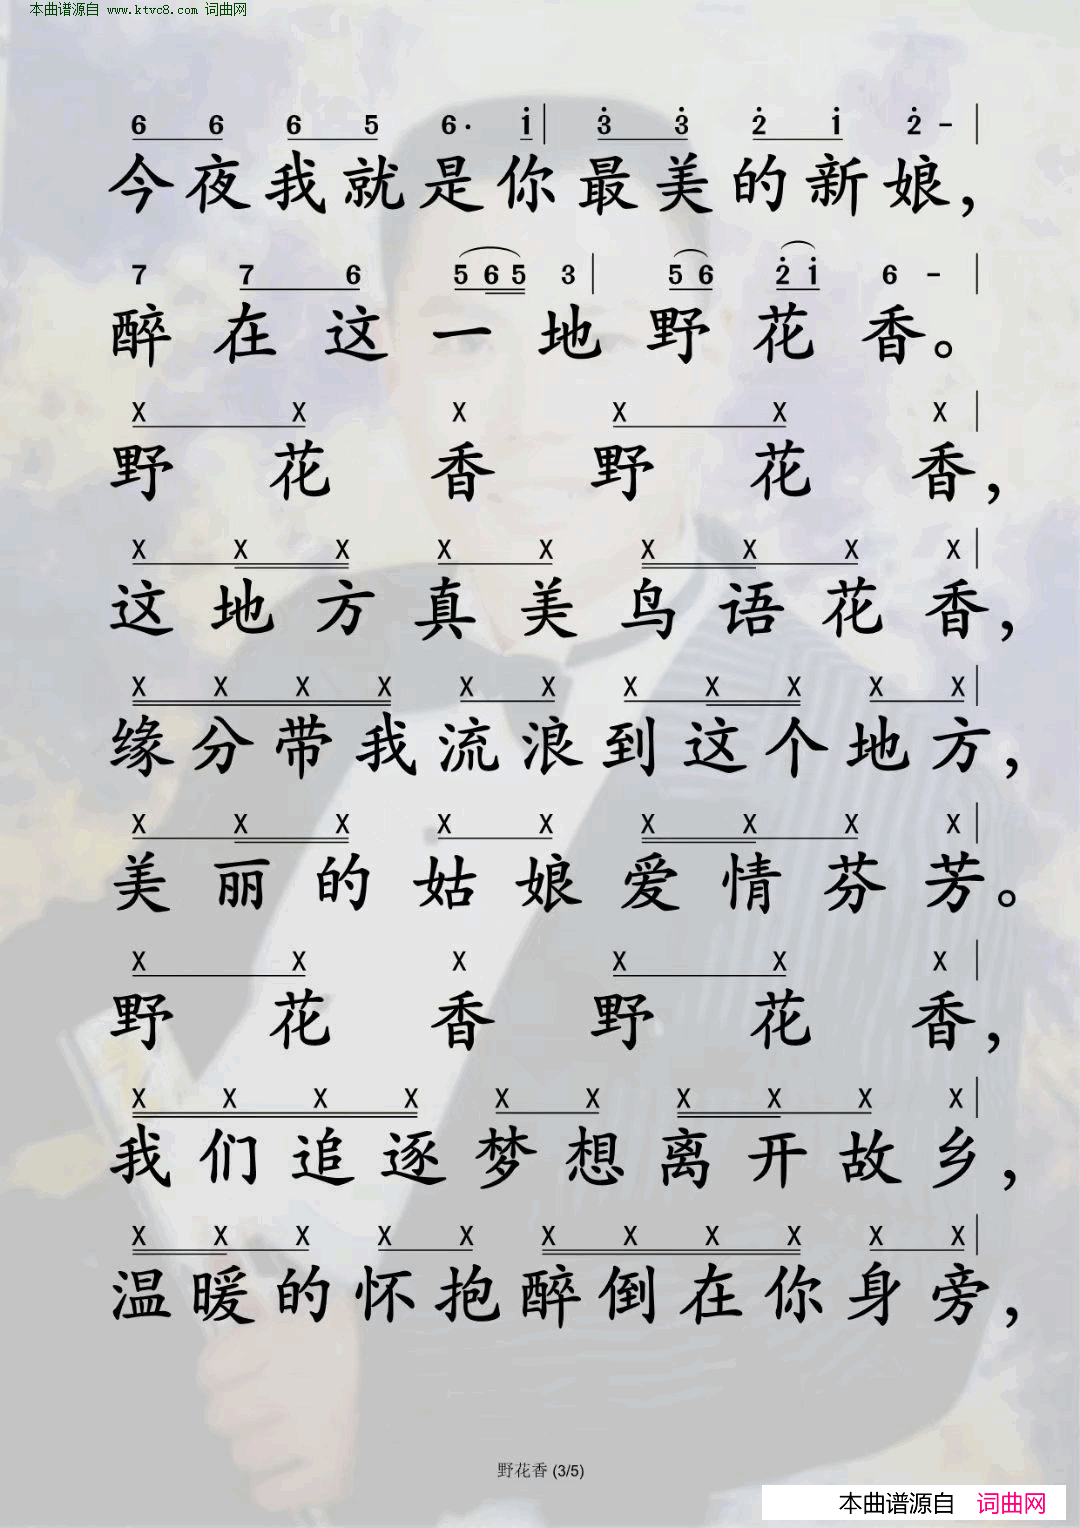 本曲谱源自 www.ktvc8.com 词曲网
6 6 6 5 6· i | 3̇ 3̇ 2̇ i 2̇ - |
今夜我就是你最美的新娘，
7 7 6 5 6 5 3 | 5 6 2̇ i 6 - |
醉在这一地野花香。
X X X X X X |
野花香野花香，
X X X X X X X X X |
这地方真美鸟语花香，
X X X X X X X X X X X |
缘分带我流浪到这个地方，
X X X X X X X X X |
美丽的姑娘爱情芬芳。
X X X X X X |
野花香野花香，
X X X X X X X X X X |
我们追逐梦想离开故乡，
X X X X X X X X X X X |
温暖的怀抱醉倒在你身旁，
野花香 (3/5)
本曲谱源自 词曲网